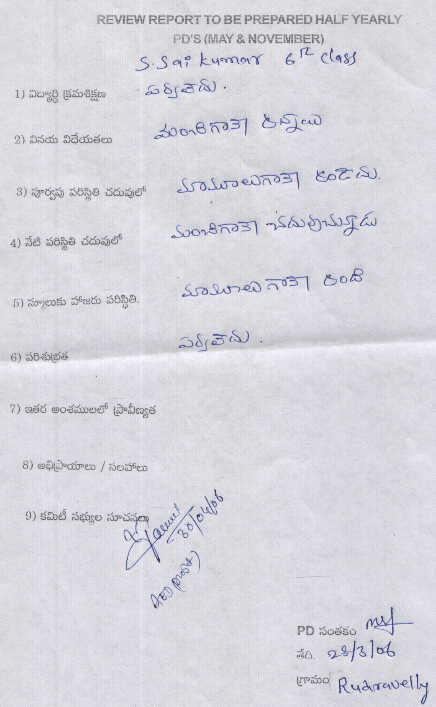 REVIEW REPORT TO BE PREPARED HALF YEARLY
PD'S (MAY & NOVEMBER)
S. Sai kumar 6th class
1) విద్యార్థి క్రమశిక్షణ పర్వలేదు.
2) వినయ విదేయతలు మంచిగానే ఉన్నాయి
3) పూర్వపు పరిస్థితి చదువులో మామూలుగానే ఉండెను.
4) నేటి పరిస్థితి చదువులో మంచిగానే చదువుచున్నాడు
5) స్కూలుకు హాజరు పరిస్థితి. మామూలుగానే ఉంది
6) పరిశుభ్రత పర్వలేదు.
7) ఇతర అంశములలో ప్రావీణ్యత
8) అభిప్రాయాలు / సలహాలు
9) కమిటీ సభ్యుల సూచనలు
30/04/06
PD సంతకం
తేది. 28/3/06
గ్రామం Rudravelly